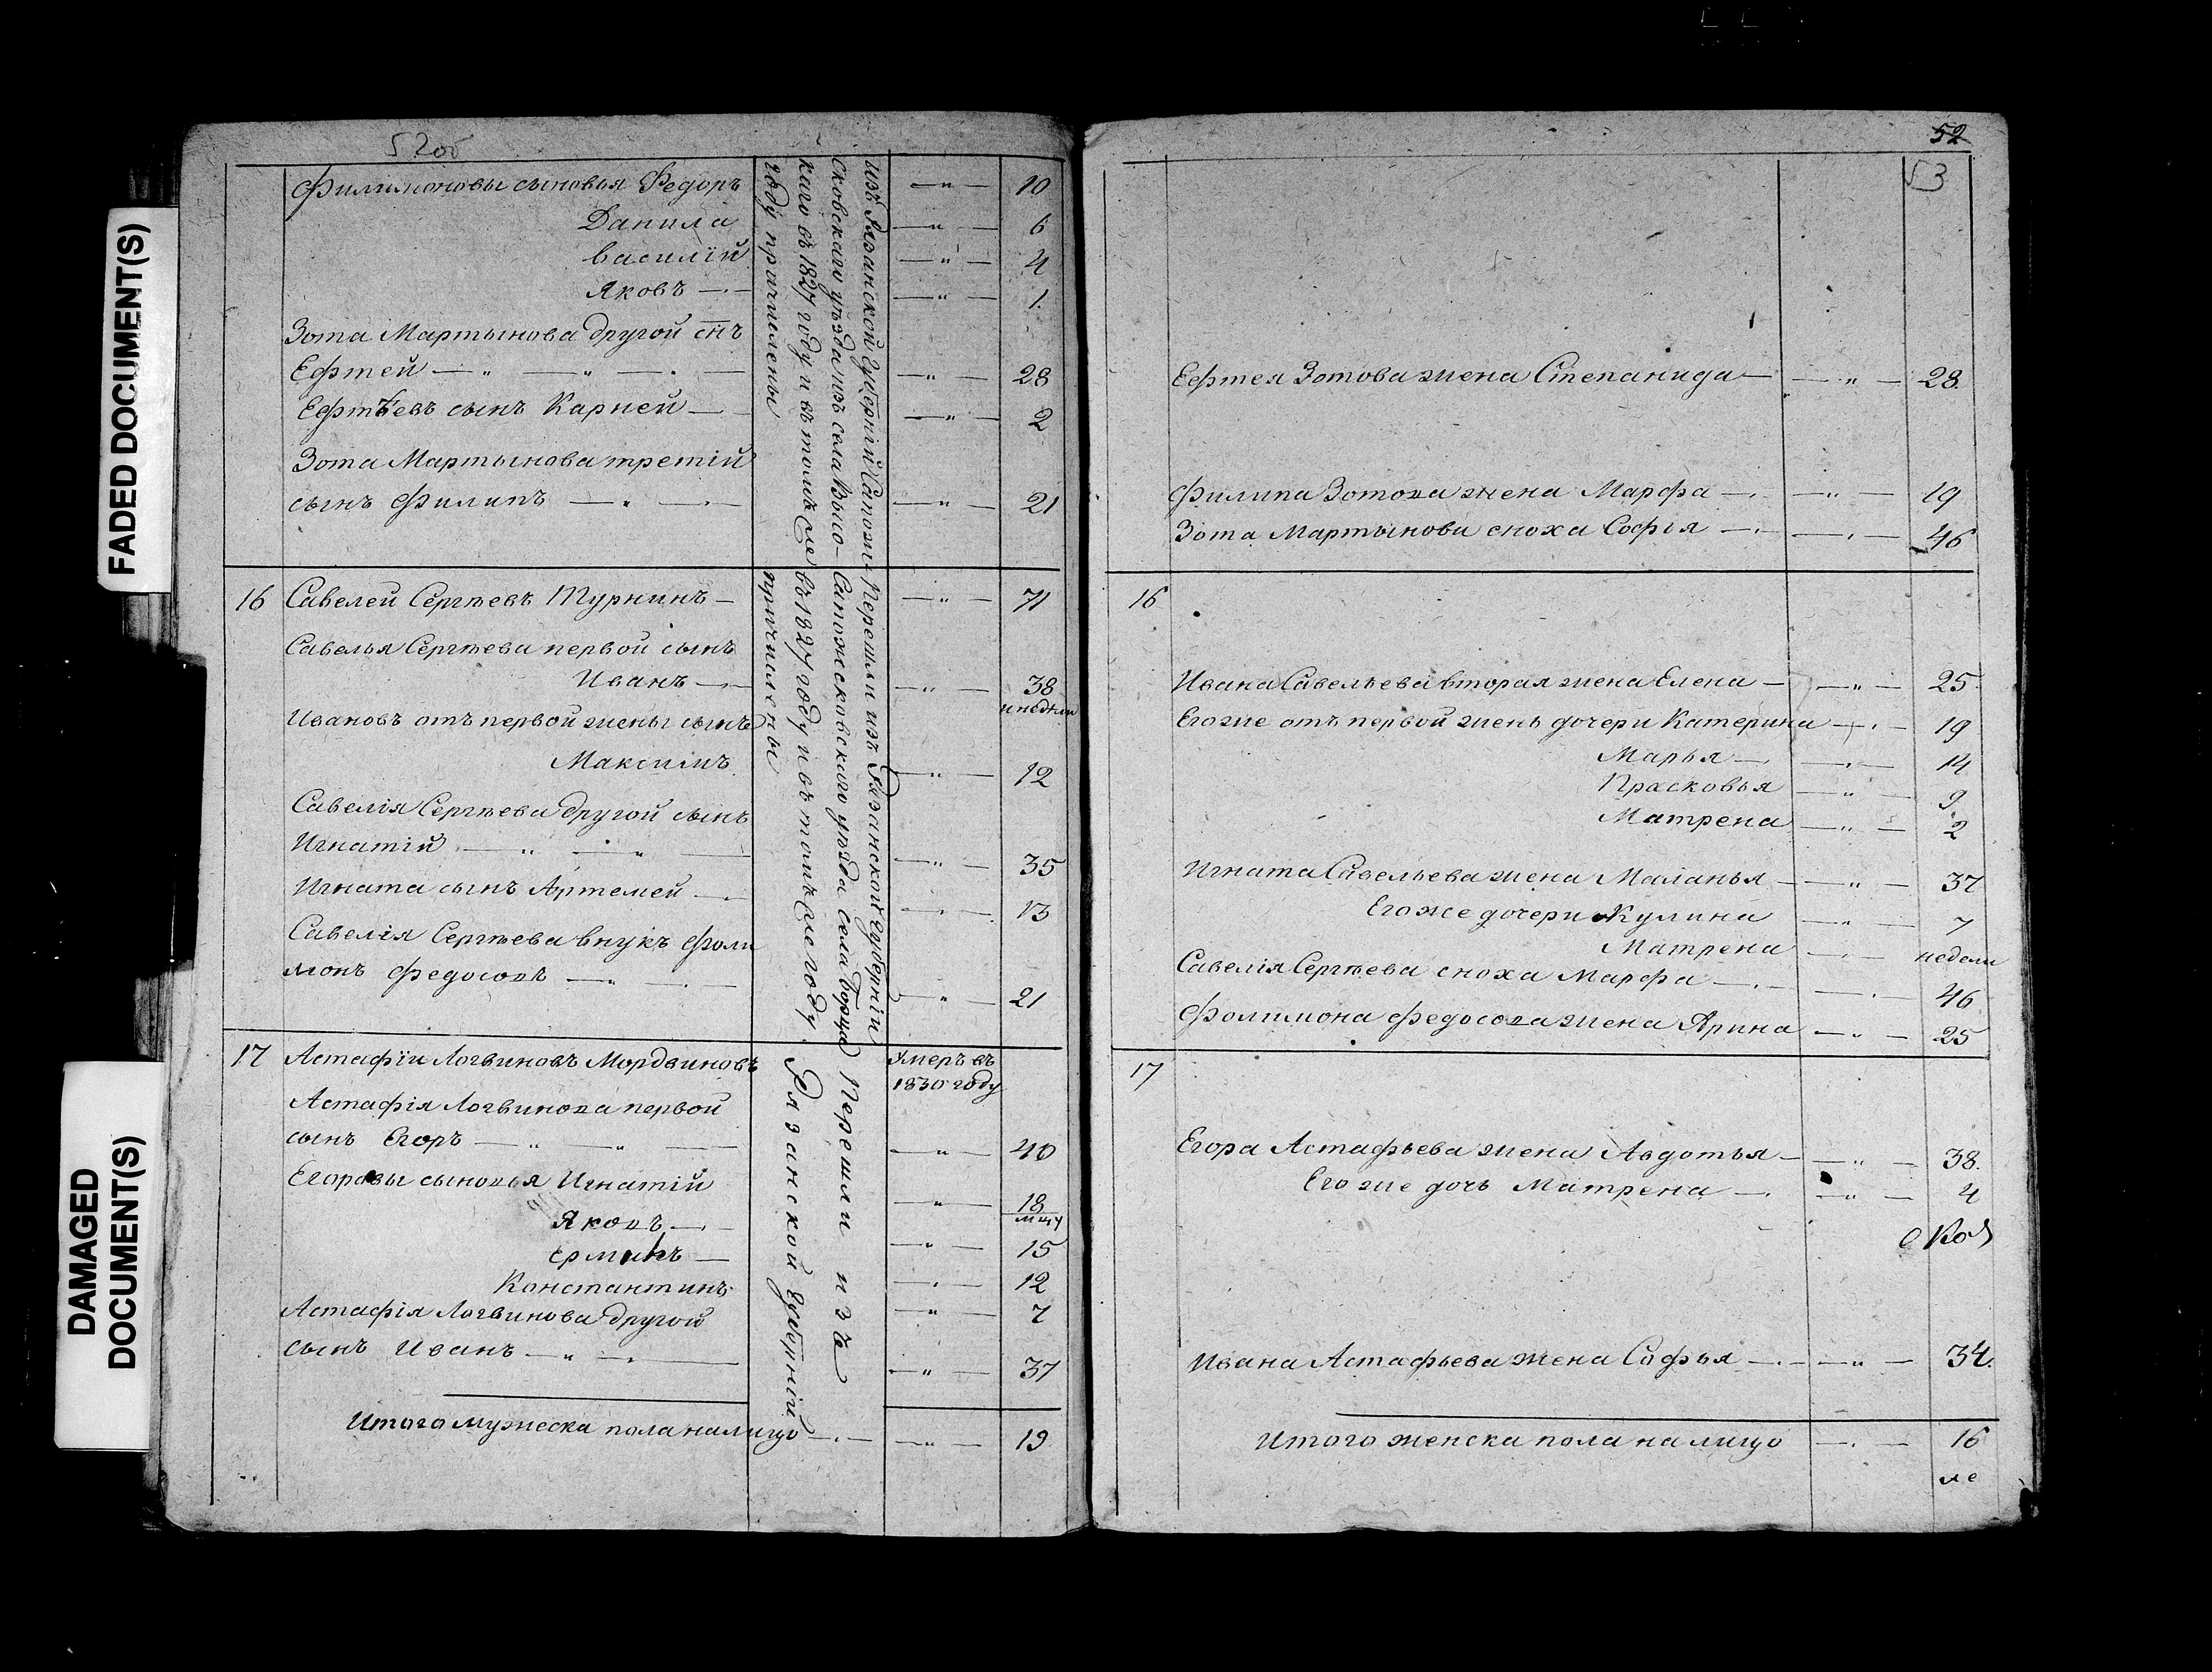 FADED DOCUMENT(S)
DAMAGED
DOCUMENT(S)
52об
Филимоновы сыновья Федоръ — " — 10
Данила — " — 6
Василій — " — 4
Яковъ — " — 1
Зота Мартынова другой сн̃ъ
Ефтей — " — 28
Ефтѣевъ сынъ Карней — " — 2
Зота Мартынова третій
сынъ Филипъ — " — 21
изъ Рязанской Губерніи Сапож-
сковскаго уѣзда изъ села Высо-
каго въ 1827 году и въ томъ же
году причислены
16 Савелей Сергѣевъ Турнинъ — " — 71
Савелья Сергѣева первой сынъ
Иванъ — " — 38
Ивановъ отъ первой жены сынъ
Максимъ — " — 12
Савелія Сергѣева другой сынъ
Игнатій — " — 35
Игната сынъ Артемей — " — 13
Савелія Сергѣева внукъ Фоли
монъ Федосовъ — " — 21
Перешли изъ Рязанской Губерніи
Сапожсковскаго уѣзда села Борца
въ 1827 году и въ томъ же году
причислены
17 Астафіи Логвиновъ Мордвиновъ Умеръ въ
1830 году
Астафія Логвинова первой
сынъ Егоръ — " — 40
Егоровы сыновья Игнатій — " — 18
Яковъ — " — 15
Ермилъ — " — 12
Константинъ — " — 7
Астафія Логвинова другой
сынъ Иванъ — " — 37
Перешли изъ
Рязанской Губерніи
Итого мужеска пола налицо — " — 19
52
53
Ефтея Зотова жена Степанида — " — 28
Филипа Зотова жена Марфа — " — 19
Зота Мартынова сноха Софья — " — 46
16
Ивана Савельева вторая жена Елена — " — 25
Его же отъ первой жены дочери Катерина — " — 19
Марья — " — 14
Прасковья — " — 9
Матрена — " — 2
Игната Савельева жена Маланья — " — 37
Его же дочери Акулина — " — 7
Матрена — " — недели
Савелія Сергѣева сноха Марфа — " — 46
Фолимона Федосова жена Арина — " — 25
17
Егора Астафьева жена Авдотья — " — 38
Его же дочь Матрена — " — 4
Ивана Астафьева жена Софья — " — 34
Итого женска пола на лицо — " — 16